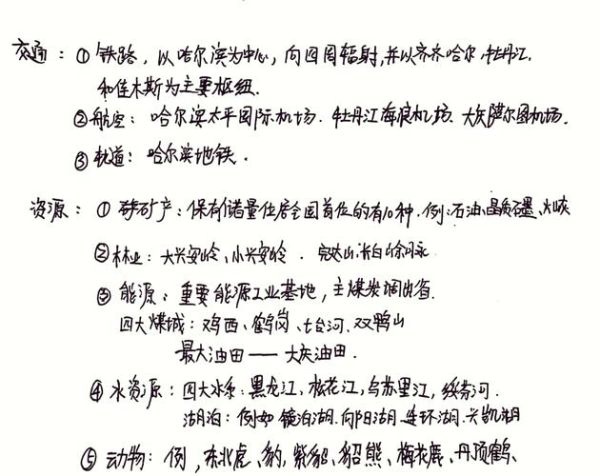 交通：① 铁路，以哈尔滨为中心，向四周辐射，并以齐齐哈尔、牡丹江、
和佳木斯为主要枢纽.
②航空：哈尔滨太平国际机场、牡丹江海浪机场、大庆萨尔图机场.
③ 轨道：哈尔滨地铁.
资源：① 矿产：保有储量位居全国首位的有10种. 例:石油、晶质石墨、
② 林业：大兴安岭、小兴安岭、完达山、长白山
③ 能源：重要能源工业基地，主煤炭调出省.
四大煤城：鸡西、鹤岗、七台河、双鸭山
最大油田——大庆油田.
④ 水资源：四大水系：黑龙江，松花江，乌苏里江，绥芬河.
湖泊：例如 镜泊湖、向阳湖、连环湖、兴凯湖
⑤ 动物：例，东北虎、豹、紫貂、貂熊、梅花鹿、丹顶鹤、